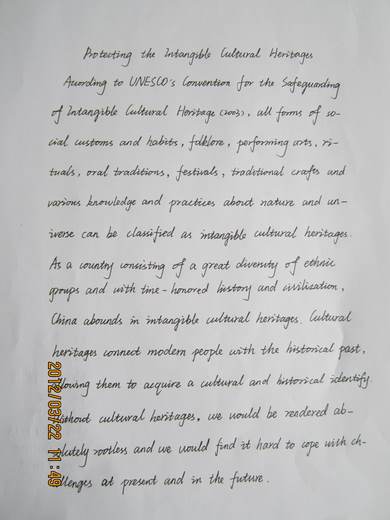 Protecting the Intangible Cultural Heritages
Acording to UNESCO's Convention for the Safeguarding
of Intangible Cultural Heritage (2003), all forms of so-
cial customs and habits, folklore, performing arts, ri-
tuals, oral traditions, festivals, traditional crafts and
various knowledge and practices about nature and un-
iverse can be classified as intangible cultural heritages.
As a country consisting of a great diversity of ethnic
groups and with time-honored history and civilization,
China abounds in intangible cultural heritages. Cultural
heritages connect modern people with the historical past,
allowing them to acquire a cultural and historical identify.
Without cultural heritages, we would be rendered ab-
solutely rootless and we would find it hard to cope with ch-
allenges at present and in the future.
2012/03/22 11:49